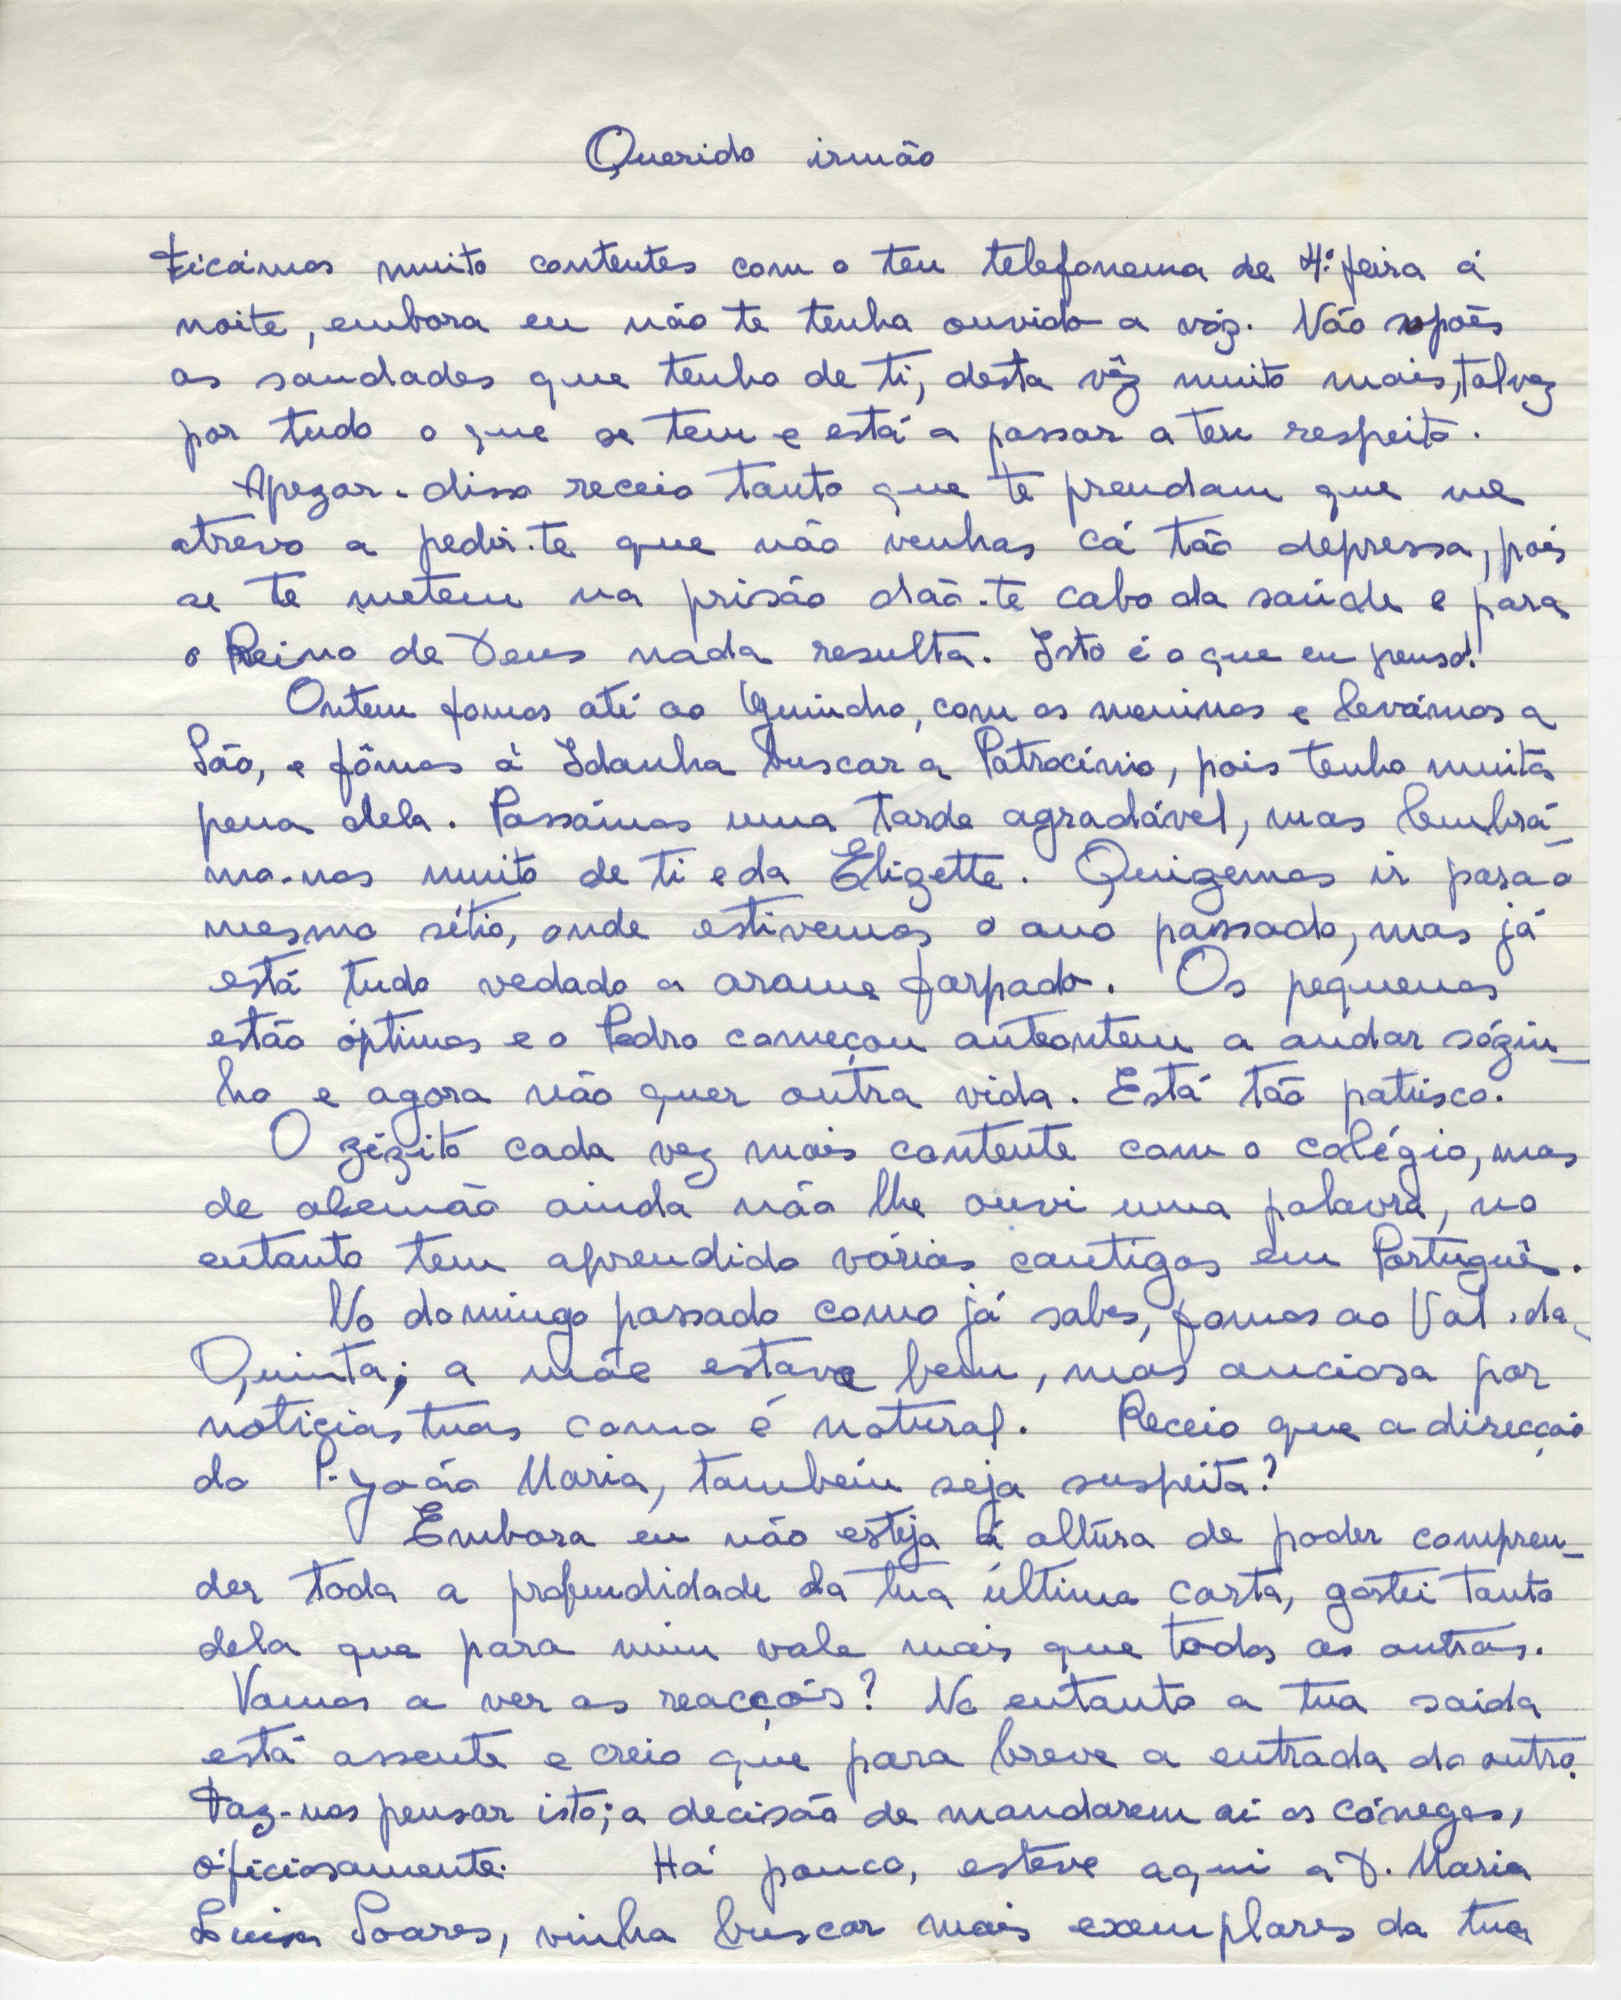 Querido irmão
Ficámos muito contentes com o teu telefonema de 4ª feira á
noite, embora eu não te tenha ouvido a vóz. Não supões
as saudades que tenho de ti, desta vêz muito mais, talvez
por tudo o que se tem e está a passar a teu respeito.
Apezar-disso receio tanto que te prendam que me
atrevo a pedir-te que não venhas cá tão depressa, pois
se te metem na prisão dão-te cabo da saúde e para
o Reino de Deus nada resulta. Isto é o que eu penso!
Ontem fomos até ao Guincho, com os meninos e levámos a
São, e fômos à Idanha buscar a Patrocínio, pois tenho muita
pena dela. Passámos uma tarde agradável, mas lembrá-
mo-nos muito de ti e da Elizette. Quizemos ir para o
mesmo sítio, onde estivemos o ano passado, mas já
está tudo vedado a arame farpado. Os pequenos
estão óptimos e o Pedro começou anteontem a andar sózin-
ho e agora não quer outra vida. Está tão patusco.
O Zézito cada vez mais contente com o colégio, mas
de alemão ainda não lhe ouvi uma palavra, no
entanto tem aprendido várias cantigas em Português.
No domingo passado como já sabes, fomos ao Val-da-
Quinta; a mãe estava bem, mas anciosa por
noticias tuas como é natural. Receio que a direcção
do P. João Maria, também seja suspeita?
Embora eu não esteja á altura de poder compreen-
der toda a profundidade da tua última carta, gostei tanto
dela que para mim vale mais que todas as outras.
Vamos a ver as reacções? No entanto a tua saida
está assente e creio que para breve a entrada do outro.
Faz-nos pensar isto; a decisão de mandarem ai os cónegos,
oficiosamente. Há pouco, esteve aqui a D. Maria
Luisa Soares, vinha buscar mais exemplares da tua